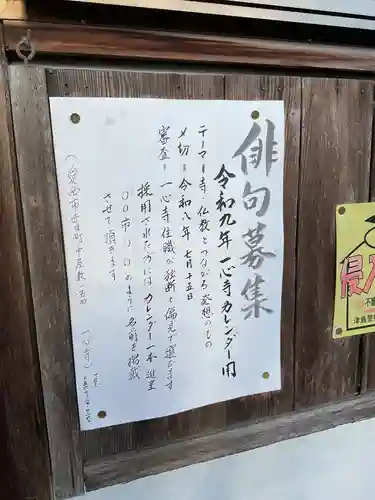 俳句募集
令和九年 一心寺カレンダー用
テーマ=寺・仏教とつながる発想のもの
〆切=令和八年 七月十五日
審査=一心寺住職が独断と偏見で選びます
採用された方には カレンダー一本 進呈
〇〇市 〇〇のように名前を掲載
させて頂きます
一心寺
侵入
不
津島警